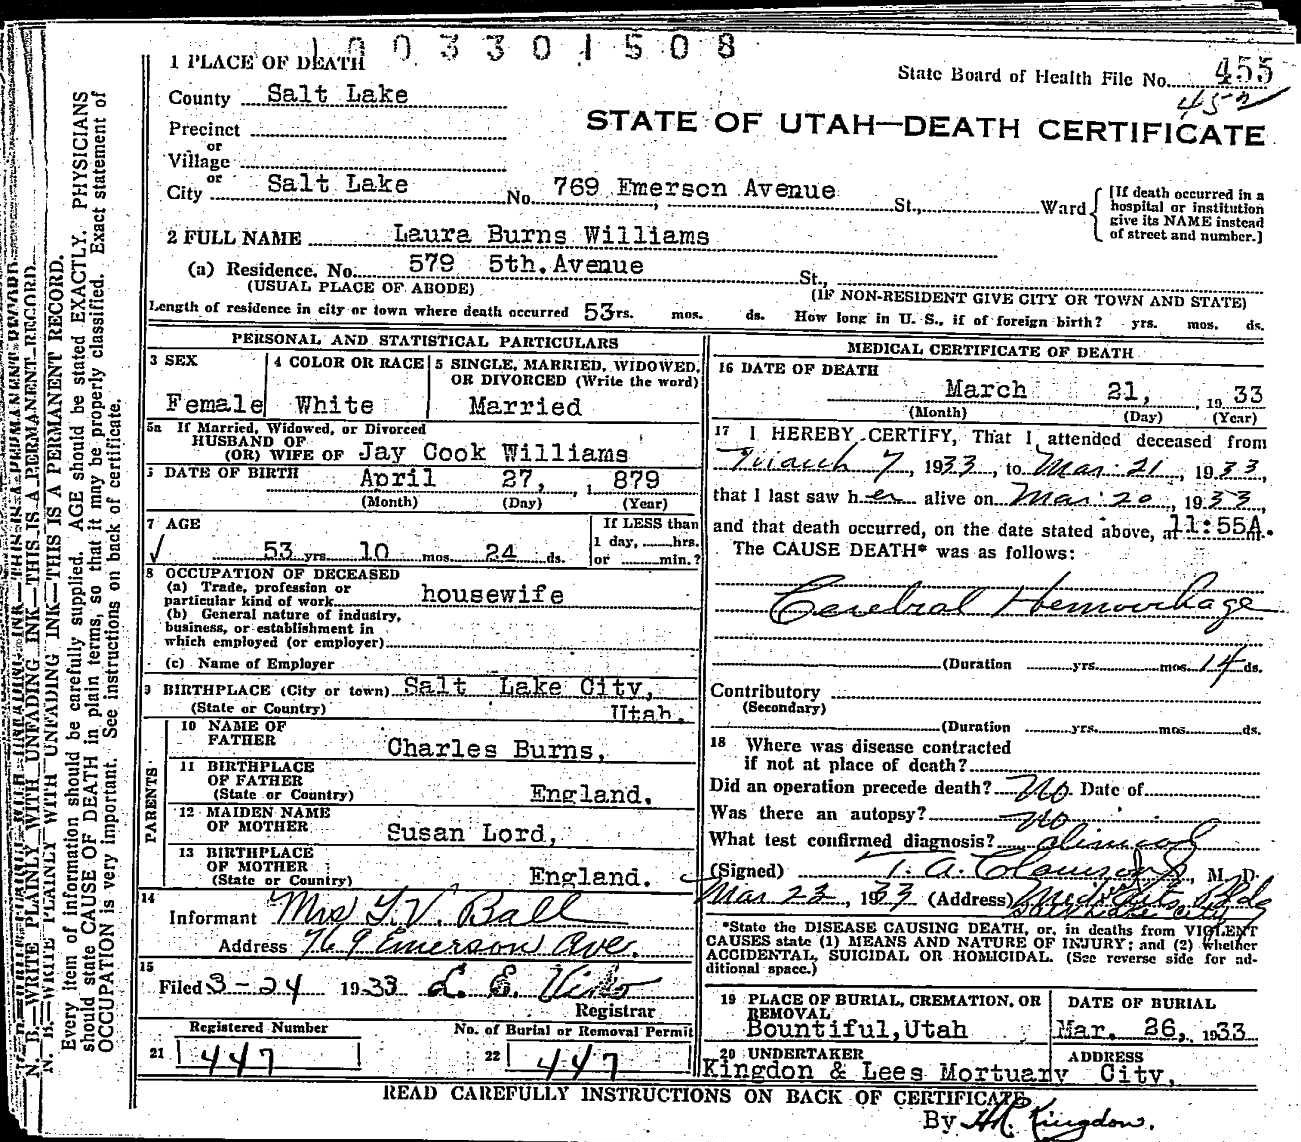 1003301508
1 PLACE OF DEATH
State Board of Health File No. 455
452
County Salt Lake
STATE OF UTAH—DEATH CERTIFICATE
Precinct
or
Village
or
City Salt Lake No. 769 Emerson Avenue St., Ward
[If death occurred in a
hospital or institution
give its NAME instead
of street and number.]
2 FULL NAME Laura Burns Williams
(a) Residence. No. 579 5th. Avenue St.,
(USUAL PLACE OF ABODE)
(IF NON-RESIDENT GIVE CITY OR TOWN AND STATE)
Length of residence in city or town where death occurred 53rs. mos. ds. How long in U. S., if of foreign birth? yrs. mos. ds.
PERSONAL AND STATISTICAL PARTICULARS
3 SEX
Female
4 COLOR OR RACE
White
5 SINGLE, MARRIED, WIDOWED,
OR DIVORCED (Write the word)
Married
5a If Married, Widowed, or Divorced
HUSBAND OF
(OR) WIFE OF Jay Cook Williams
DATE OF BIRTH April 27, 1 879
(Month) (Day) (Year)
7 AGE
53 yrs. 10 mos. 24 ds.
If LESS than
1 day, hrs.
or min.?
8 OCCUPATION OF DECEASED
(a) Trade, profession or
particular kind of work housewife
(b) General nature of industry,
business, or establishment in
which employed (or employer)
(c) Name of Employer
9 BIRTHPLACE (City or town) Salt Lake City,
(State or Country) Utah.
PARENTS
10 NAME OF
FATHER Charles Burns,
11 BIRTHPLACE
OF FATHER
(State or Country) England.
12 MAIDEN NAME
OF MOTHER Susan Lord,
13 BIRTHPLACE
OF MOTHER
(State or Country) England.
14
Informant Mrs T. V. Ball
Address 769 Emerson Ave.
15
Filed 3-24 1933 L. E.
Registrar
Registered Number
21 447
No. of Burial or Removal Permit
22 447
MEDICAL CERTIFICATE OF DEATH
16 DATE OF DEATH
March 21, 19 33
(Month) (Day) (Year)
17 I HEREBY CERTIFY, That I attended deceased from
March 7, 1933, to Mar. 21, 1933,
that I last saw her alive on Mar. 20, 1933
and that death occurred, on the date stated above, at 11:55A.m.
The CAUSE DEATH* was as follows:
Cerebral Hemorrhage
(Duration yrs. mos. 14 ds.
Contributory
(Secondary)
(Duration yrs. mos. ds.
18 Where was disease contracted
if not at place of death?
Did an operation precede death? No Date of
Was there an autopsy? no
What test confirmed diagnosis? clinical
(Signed) T. A. Clawson Jr, M. D.
Mar 22, 1933 (Address) Medical Arts Bldg
Salt Lake City
*State the DISEASE CAUSING DEATH, or, in deaths from VIOLENT
CAUSES state (1) MEANS AND NATURE OF INJURY; and (2) whether
ACCIDENTAL, SUICIDAL OR HOMICIDAL. (See reverse side for ad-
ditional space.)
19 PLACE OF BURIAL, CREMATION, OR
REMOVAL
Bountiful, Utah
DATE OF BURIAL
Mar. 26, 1933
20 UNDERTAKER
Kingdon & Lees Mortuary
ADDRESS
City,
READ CAREFULLY INSTRUCTIONS ON BACK OF CERTIFICATE
By H. Kingdon.
N. B.—WRITE PLAINLY WITH UNFADING INK—THIS IS A PERMANENT RECORD.
N. B.—WRITE PLAINLY WITH UNFADING INK—THIS IS A PERMANENT RECORD.
Every item of information should be carefully supplied. AGE should be stated EXACTLY. PHYSICIANS
should state CAUSE OF DEATH in plain terms, so that it may be properly classified. Exact statement of
OCCUPATION is very important. See instructions on back of certificate.